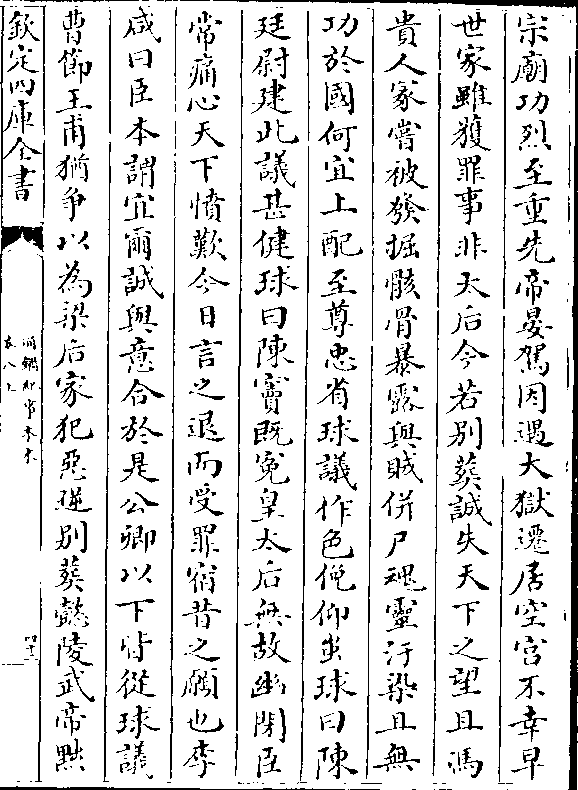 宗廟功烈至重先帝晏駕因遇大獄遷居空宮不幸早
世家雖獲罪事非太后今若别葬誠失天下之望且馮
貴人冢嘗被發掘骸骨暴露與賊併尸魂靈汙染且無
功於國何宜上配至尊忠省球議作色俛仰蚩球曰陳
廷尉建此議甚健球曰陳竇既冤皇太后無故幽閉臣
常痛心天下憤歎今日言之退而受罪宿昔之願也李
咸曰臣本謂宜爾誠與意合於是公卿以下皆從球議
曹節王甫猶爭以為梁后家犯惡逆别葬懿陵武帝黜
欽定四庫全書
通鑑紀事本末
卷八上